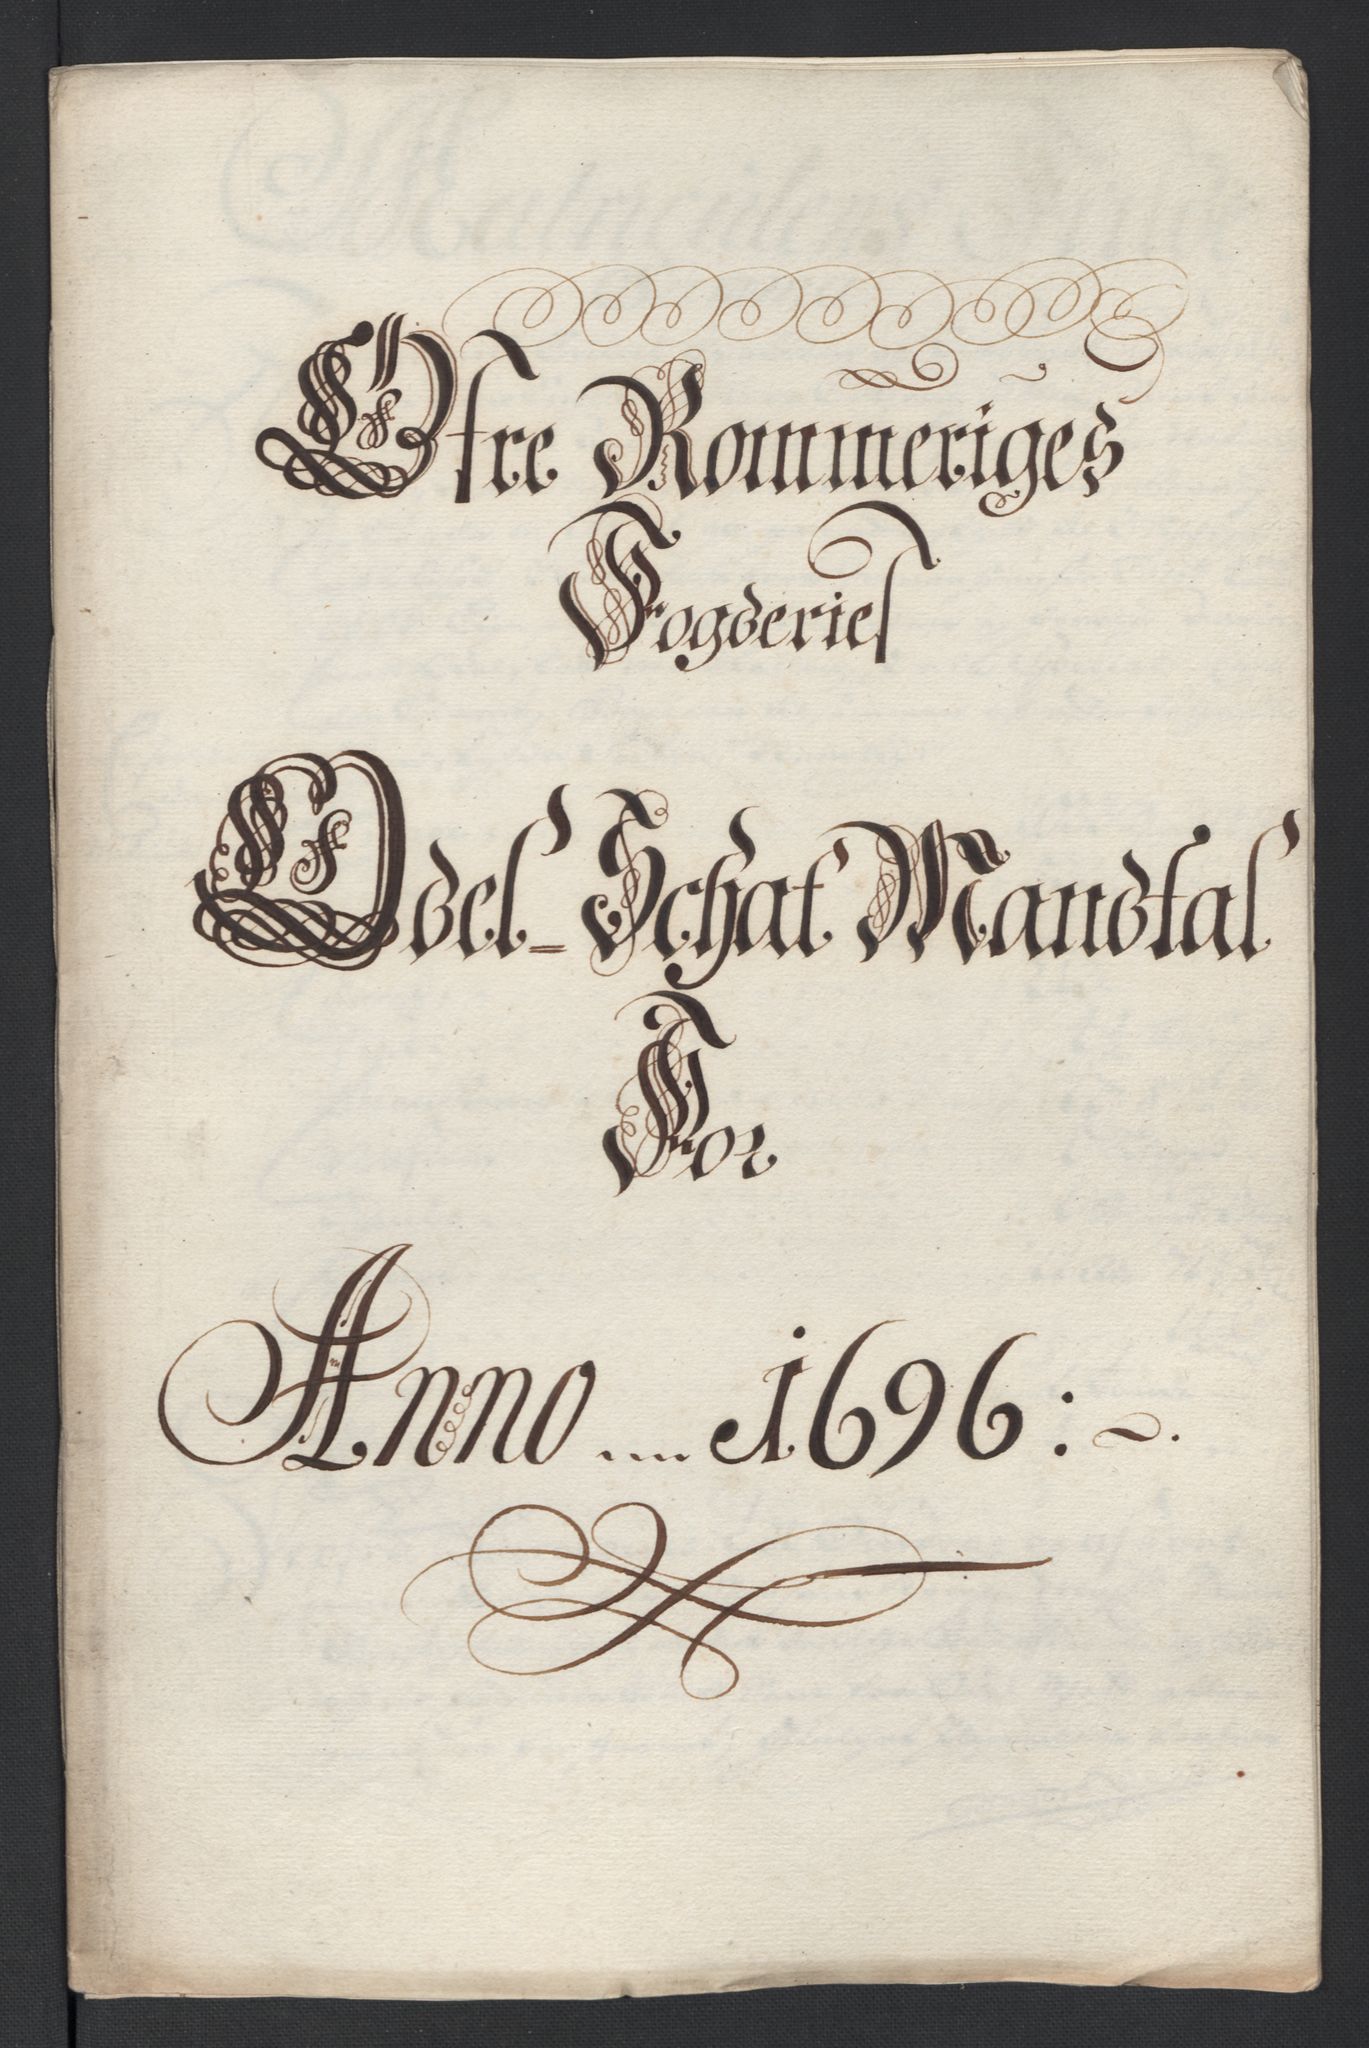 Øfre Rommeriges
Fogderies
Odel-Schat Mandtal
For
Anno 1696:~.